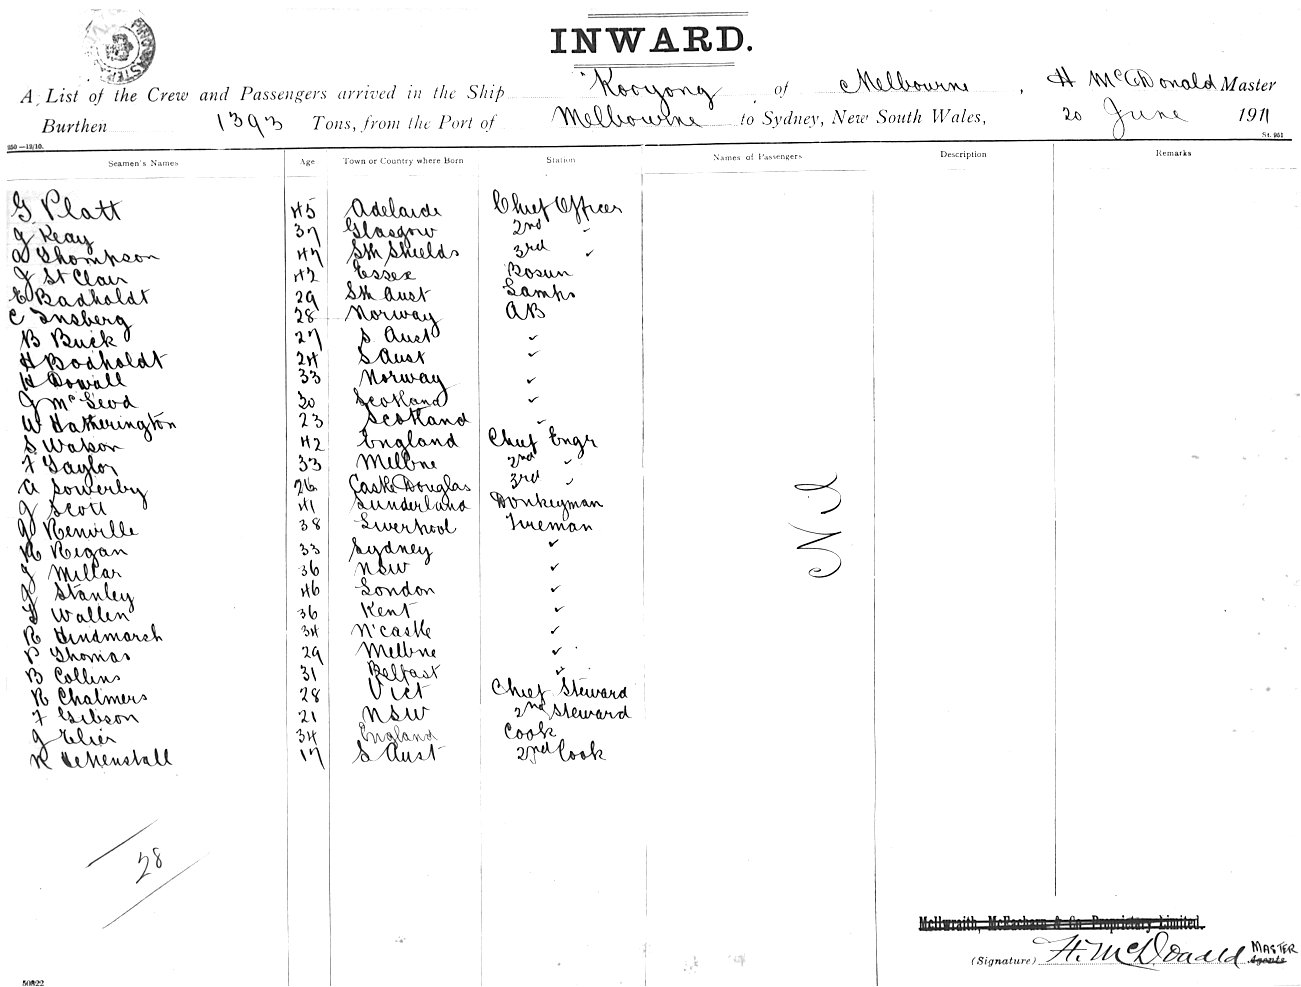 INWARD.
A List of the Crew and Passengers arrived in the Ship Kooyong of Melbourne, H McDonald Master
Burthen 1393 Tons, from the Port of Melbourne to Sydney, New South Wales, 20 June 1911
950—12/10. St. 951
Seamen's Names Age Town or Country where Born Station Names of Passengers Description Remarks
G Platt 45 Adelaide Chief Officer
J Keay 37 Glasgow 2nd "
D Thompson 47 Sth Shields 3rd "
J St Clair 42 Essex Bosun
E Badholdt 29 Sth Aust Lamps
C Insberg 28 Norway AB
B Buck 27 S Aust "
H Bodholdt 24 S Aust "
H Dowall 33 Norway "
J McLeod 30 Scotland "
W Hatherington 23 Scotland "
S Watson 42 England Chief Engr
F Taylor 33 Melbne 2nd "
A Sowerby 26 Castle Douglas 3rd "
J Scott 41 Sunderland Donkeyman
J Renville 38 Liverpool Fireman
R Regan 33 Sydney "
J Millar 36 NSW "
J Stanley 46 London "
D Wallen 36 Kent "
R Hindmarsh 34 N'castle "
P Thomas 29 Melbne "
B Collins 31 Belfast "
R Chalmers 28 Vict Chief Steward
F Gibson 21 NSW 2nd Steward
J Elier 34 England Cook
R 17 S Aust 2nd Cook
Nil
28
McIlwraith, McEacharn & Co Proprietary Limited.
(Signature) H. McDonald Master
Agents
50822